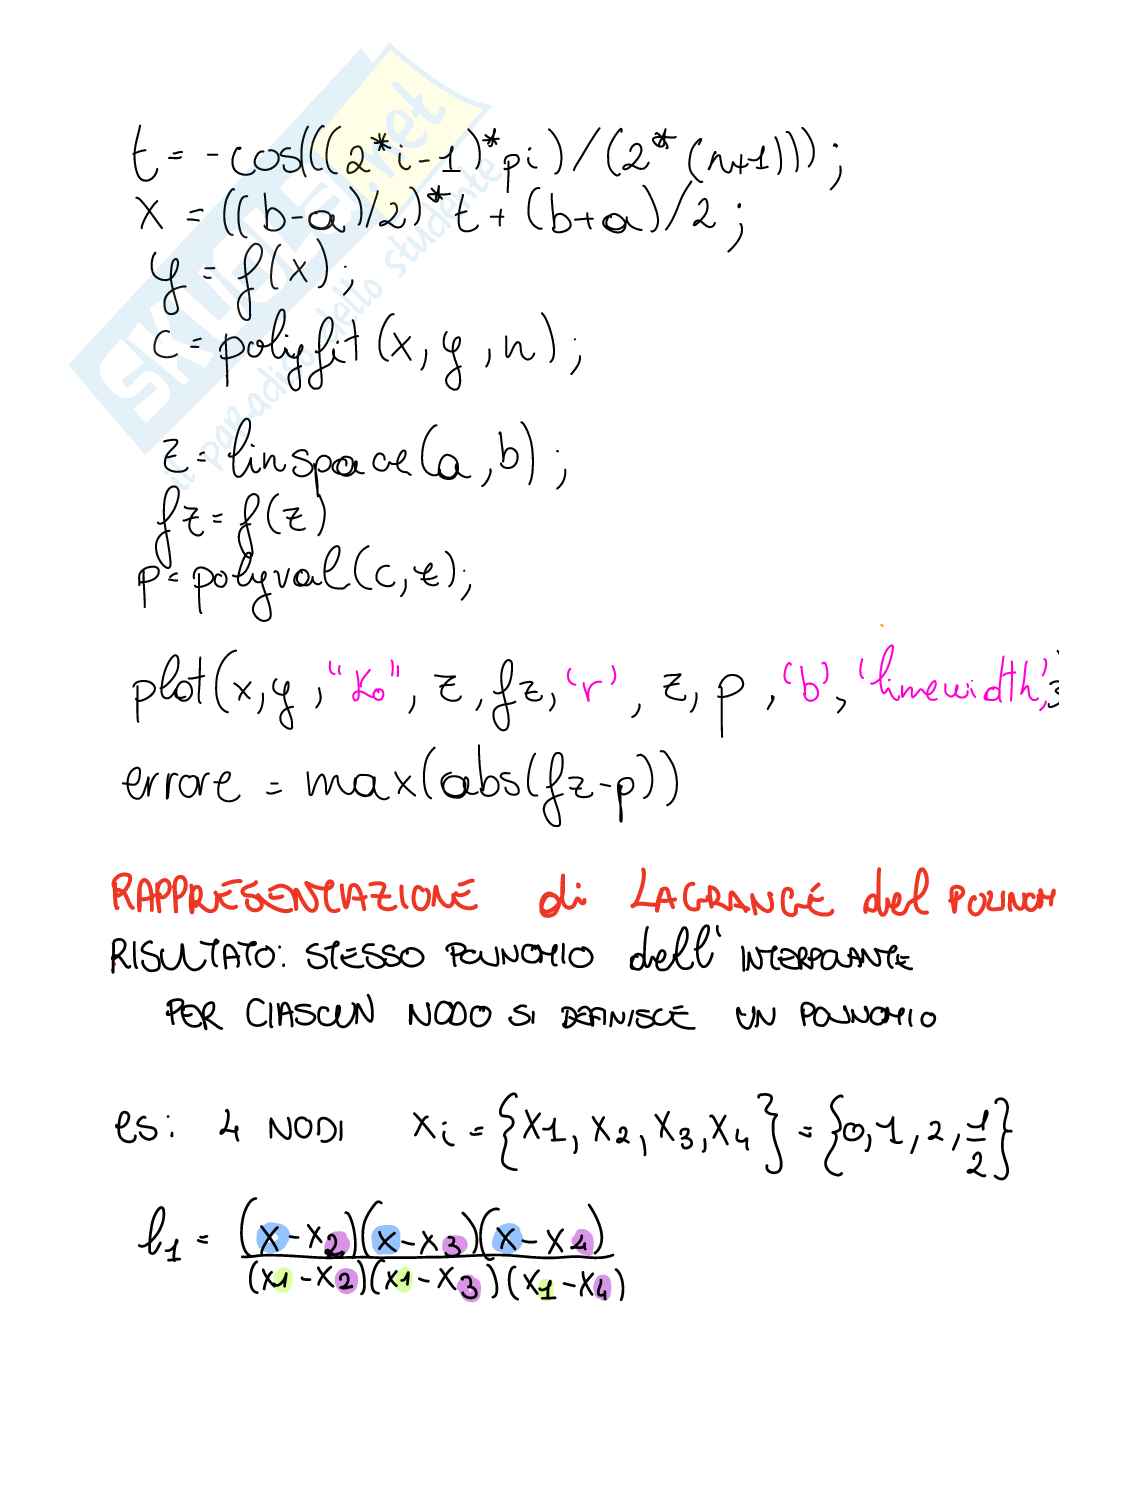 SKUOLA.net
il paradiso dello studente
t = -cos(((2*i-1)*pi)/(2*(n+1)));
x = ((b-a)/2)*t + (b+a)/2;
y = f(x);
c = polyfit(x,y,n);
z = linspace(a,b);
fz = f(z)
p = polyval(c,z);
plot(x,y,"ko", z,fz,'r', z,p,'b','linewidth',3
errore = max(abs(fz-p))
RAPPRESENTAZIONE di LAGRANGE del POLINOM
RISULTATO: STESSO POLINOMIO dell' INTERPOLANTE
PER CIASCUN NODO SI DEFINISCE UN POLINOMIO
es: 4 NODI xi = {x1, x2, x3, x4} = {0, 1, 2, 1/2}
l1 = (x-x2)(x-x3)(x-x4)
(x1-x2)(x1-x3)(x1-x4)